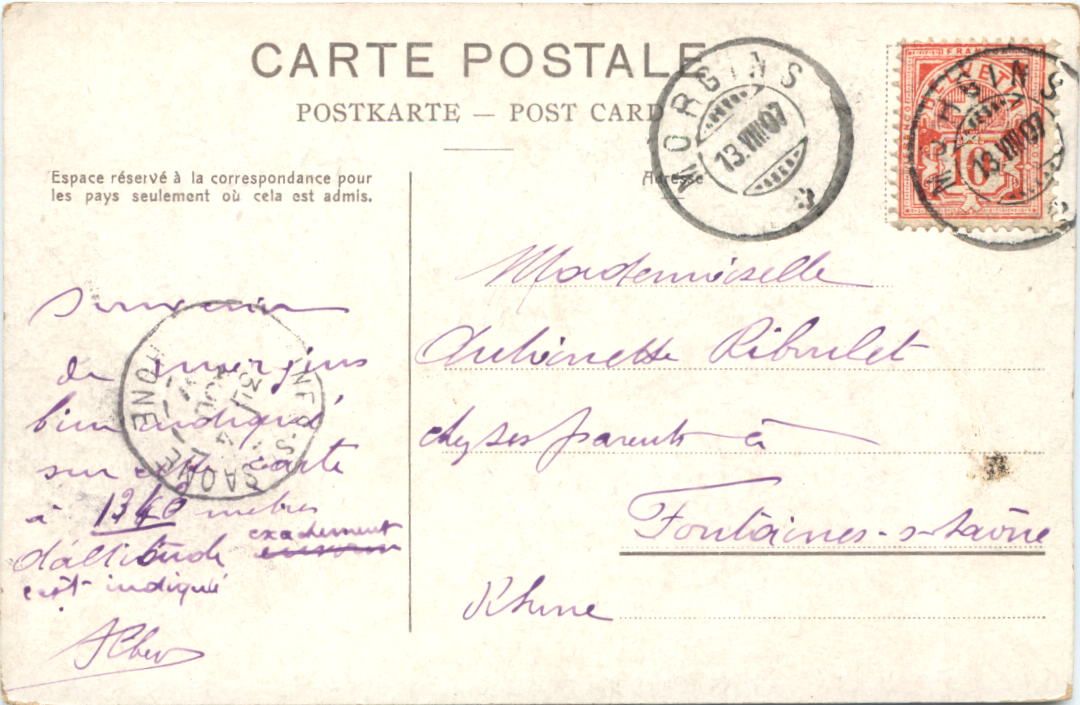 CARTE POSTALE
POSTKARTE — POST CARD
Espace réservé à la correspondance pour
les pays seulement où cela est admis.
Adresse
MORGINS
13.VIII.07
FRANCO
HELVETIA
10
MORGINS
13.VIII.07
Mademoiselle
Antoinette Riboulet
chez ses parents à
Fontaines-s-Saône
Rhône
Souvenir
de morgins
bien indiqué
sur cette carte
à 1340 mètres
d'altitude exactement
c'est indiqué
NES-S-SAONE
RHONE